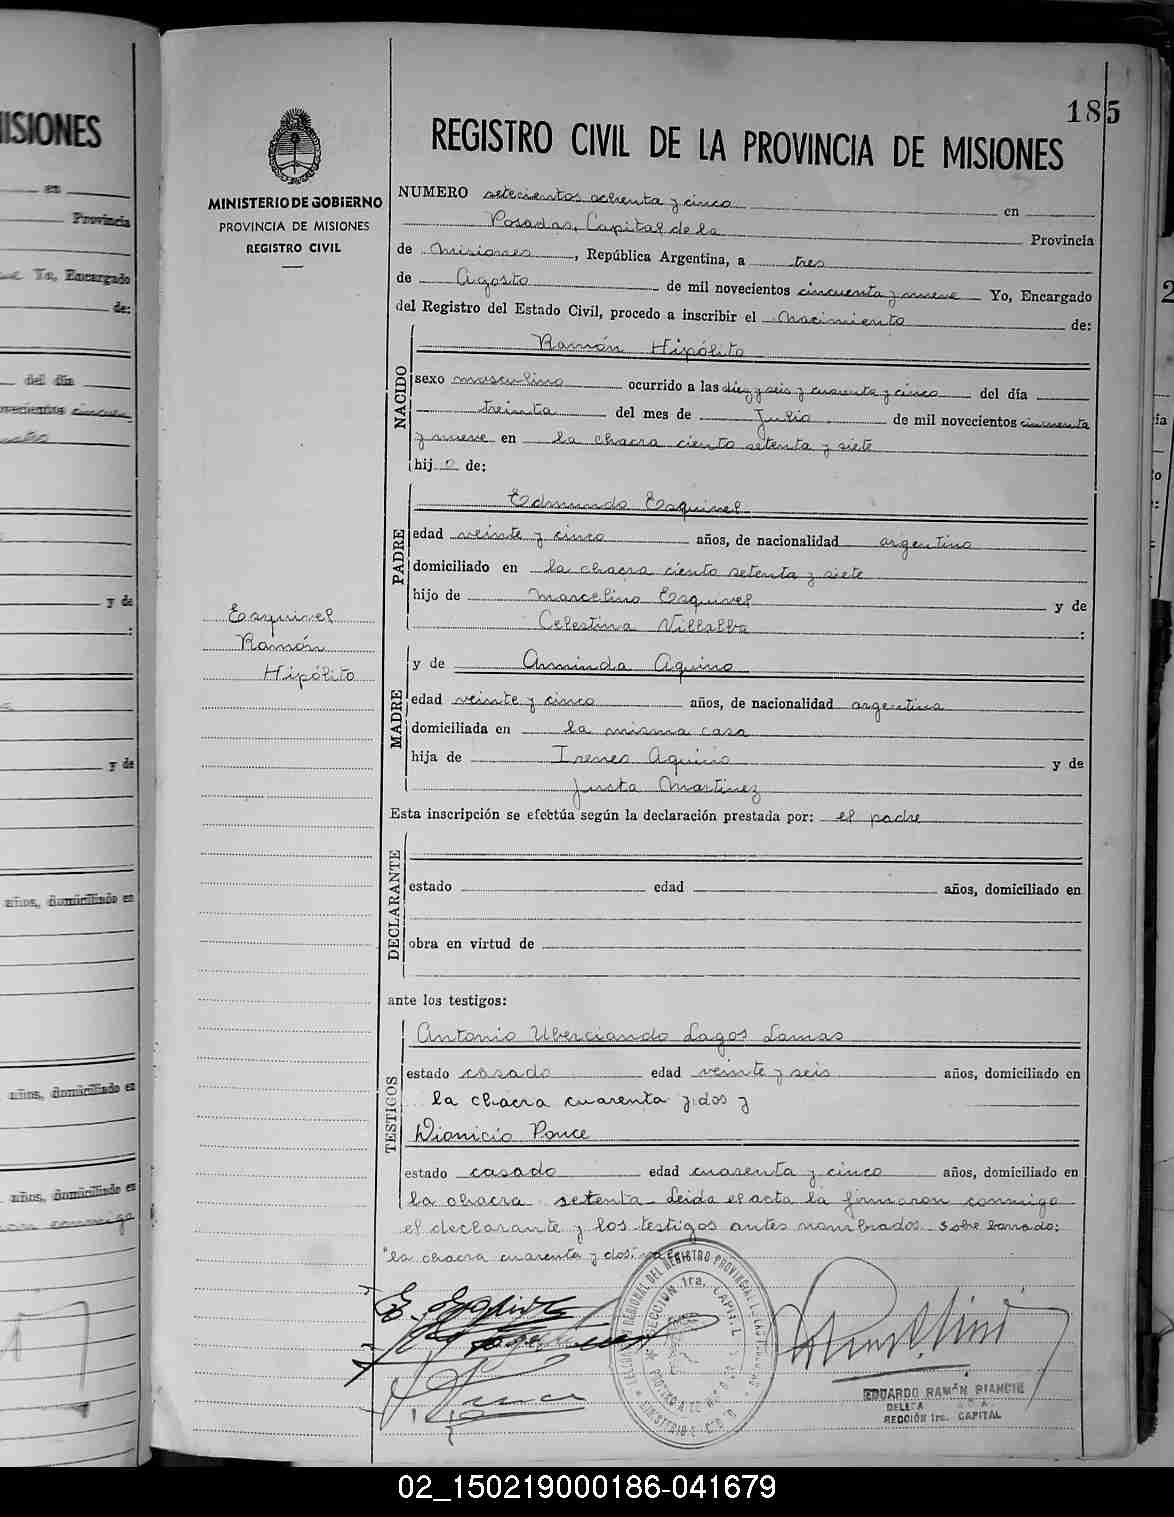 185
REGISTRO CIVIL DE LA PROVINCIA DE MISIONES
MINISTERIO DE GOBIERNO
PROVINCIA DE MISIONES
REGISTRO CIVIL
NUMERO setecientos ochenta y cinco en
Posadas, Capital de la Provincia
de Misiones, República Argentina, a tres
de Agosto de mil novecientos cincuenta y nueve Yo, Encargado
del Registro del Estado Civil, procedo a inscribir el Nacimiento de:
NACIDO
Ramón Hipólito
sexo masculino ocurrido a las diez y seis y cuarenta y cinco del día
treinta del mes de Julio de mil novecientos cincuenta
y nueve en la chacra ciento setenta y siete
hijo de:
PADRE
Edmundo Esquivel
edad veinte y cinco años, de nacionalidad argentino
domiciliado en la chacra ciento setenta y siete
hijo de Marcelino Esquivel y de
Celestina Villalba :
Esquivel
Ramón
Hipólito
MADRE
y de Arminda Aquino
edad veinte y cinco años, de nacionalidad argentina
domiciliada en la misma casa
hija de Ireneo Aquino y de
Justa Martinez
Esta inscripción se efectúa según la declaración prestada por: el padre
DECLARANTE
estado edad años, domiciliado en
obra en virtud de
ante los testigos:
TESTIGOS
Antonio Uberciando Lagos Lamas
estado casado edad veinte y seis años, domiciliado en
la chacra cuarenta y dos y
Dionicio Ponce
estado casado edad cuarenta y cinco años, domiciliado en
la chacra setenta. Leida el acta la firmaron conmigo
el declarante y los testigos antes nombrados. Sobre borrado:
"la chacra cuarenta y dos; vale.
EDUARDO RAMÓN BIANCHI
CCIÓN 1ra. CAPITAL
ISIONES
en
Provincia
Yo, Encargado
de:
del día
y de
:
y de
años, domiciliado en
años, domiciliado en
años, domiciliado en
conmigo
02_150219000186-041679